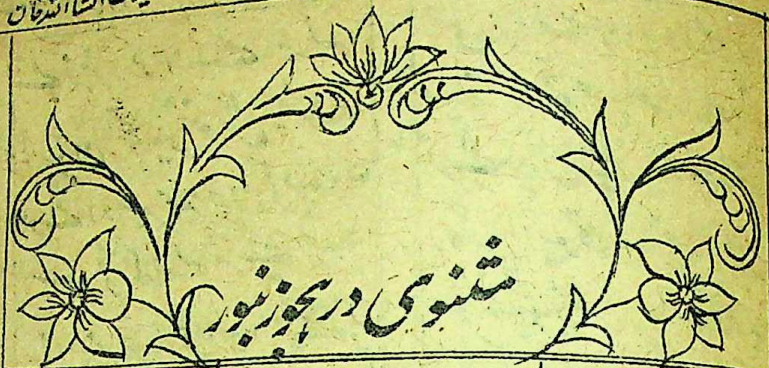 انشا اللہ خان
مثنوی در ہجو زنبور